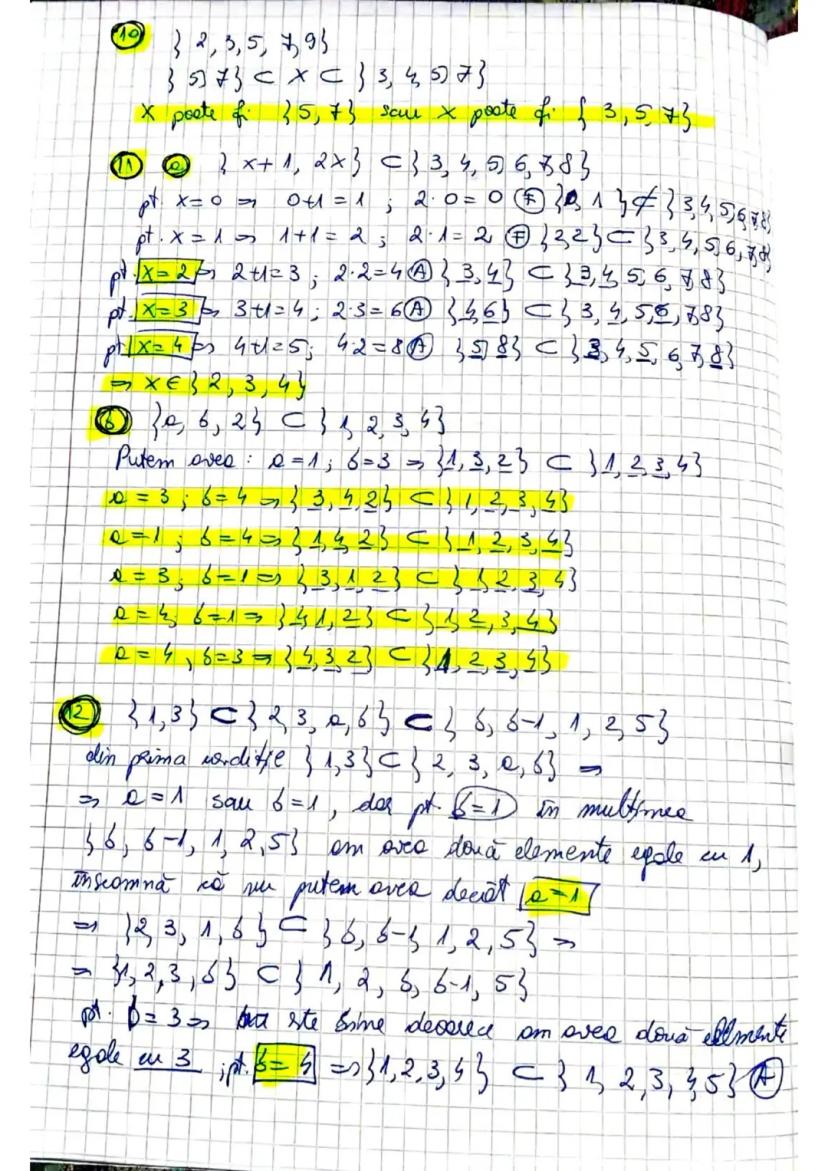 10 { 2, 3, 5, 7, 9}
{ 5, 7} ⊂ X ⊂ { 3, 4, 5, 7}
X poate fi {5, 7} sau X poate fi { 3, 5, 7}
11 a { x+1, 2x} ⊂ { 3, 4, 5, 6, 7, 8}
pt. x=0 ⇒ 0+1=1 ; 2·0=0 (F) {0, 1} ⊄ {3,4,5,6,7,8}
pt. x=1 ⇒ 1+1=2 ; 2·1=2 (F) {2,2} ⊂ {3,4,5,6,7,8}
pt. x=2 ⇒ 2+1=3 ; 2·2=4 (A) {3,4} ⊂ {3,4,5,6,7,8}
pt. x=3 ⇒ 3+1=4 ; 2·3=6 (A) {4,6} ⊂ {3,4,5,6,7,8}
pt. x=4 ⇒ 4+1=5; 4·2=8 (A) {5,8} ⊂ {3,4,5,6,7,8}
⇒ x∈{2, 3, 4}
b {a, b, 2} ⊂ {1, 2, 3, 4}
Putem avea : a=1 ; b=3 ⇒ {1, 3, 2} ⊂ {1, 2, 3, 4}
a=3 ; b=4 ⇒ {3, 4, 2} ⊂ {1, 2, 3, 4}
a=1 ; b=4 ⇒ {1, 4, 2} ⊂ {1, 2, 3, 4}
a=3 ; b=1 ⇒ {3, 1, 2} ⊂ {1, 2, 3, 4}
a=4, b=1 ⇒ {4, 1, 2} ⊂ {1, 2, 3, 4}
a=4, b=3 ⇒ {4, 3, 2} ⊂ {1, 2, 3, 4}
12 {1,3} ⊂ {2, 3, a, b} ⊂ {b, b-1, 1, 2, 5}
din prima condiție {1,3} ⊂ {2, 3, a, b} ⇒
⇒ a=1 sau b=1, dar pt. b=1 în mulțimea
{b, b-1, 1, 2, 5} am avea două elemente egale cu 1,
înseamnă că nu putem avea decât a=1
⇒ {2, 3, 1, b} ⊂ {b, b-1, 1, 2, 5} ⇒
⇒ {1, 2, 3, b} ⊂ {1, 2, b, b-1, 5}
pt. b=3 ⇒ nu este bine deoarece am avea două elemente
egale cu 3 ; pt. b=4 ⇒ {1, 2, 3, 4} ⊂ {1, 2, 3, 4, 5} (A)